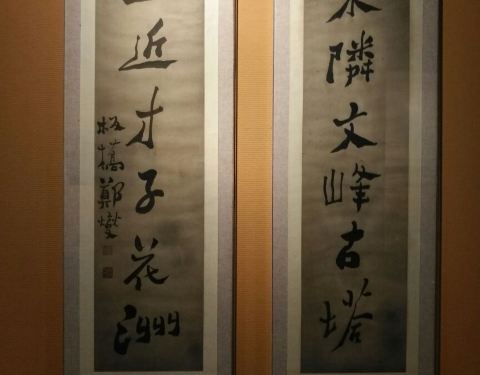 隣文峰古塔
近才子花洲
板橋鄭燮